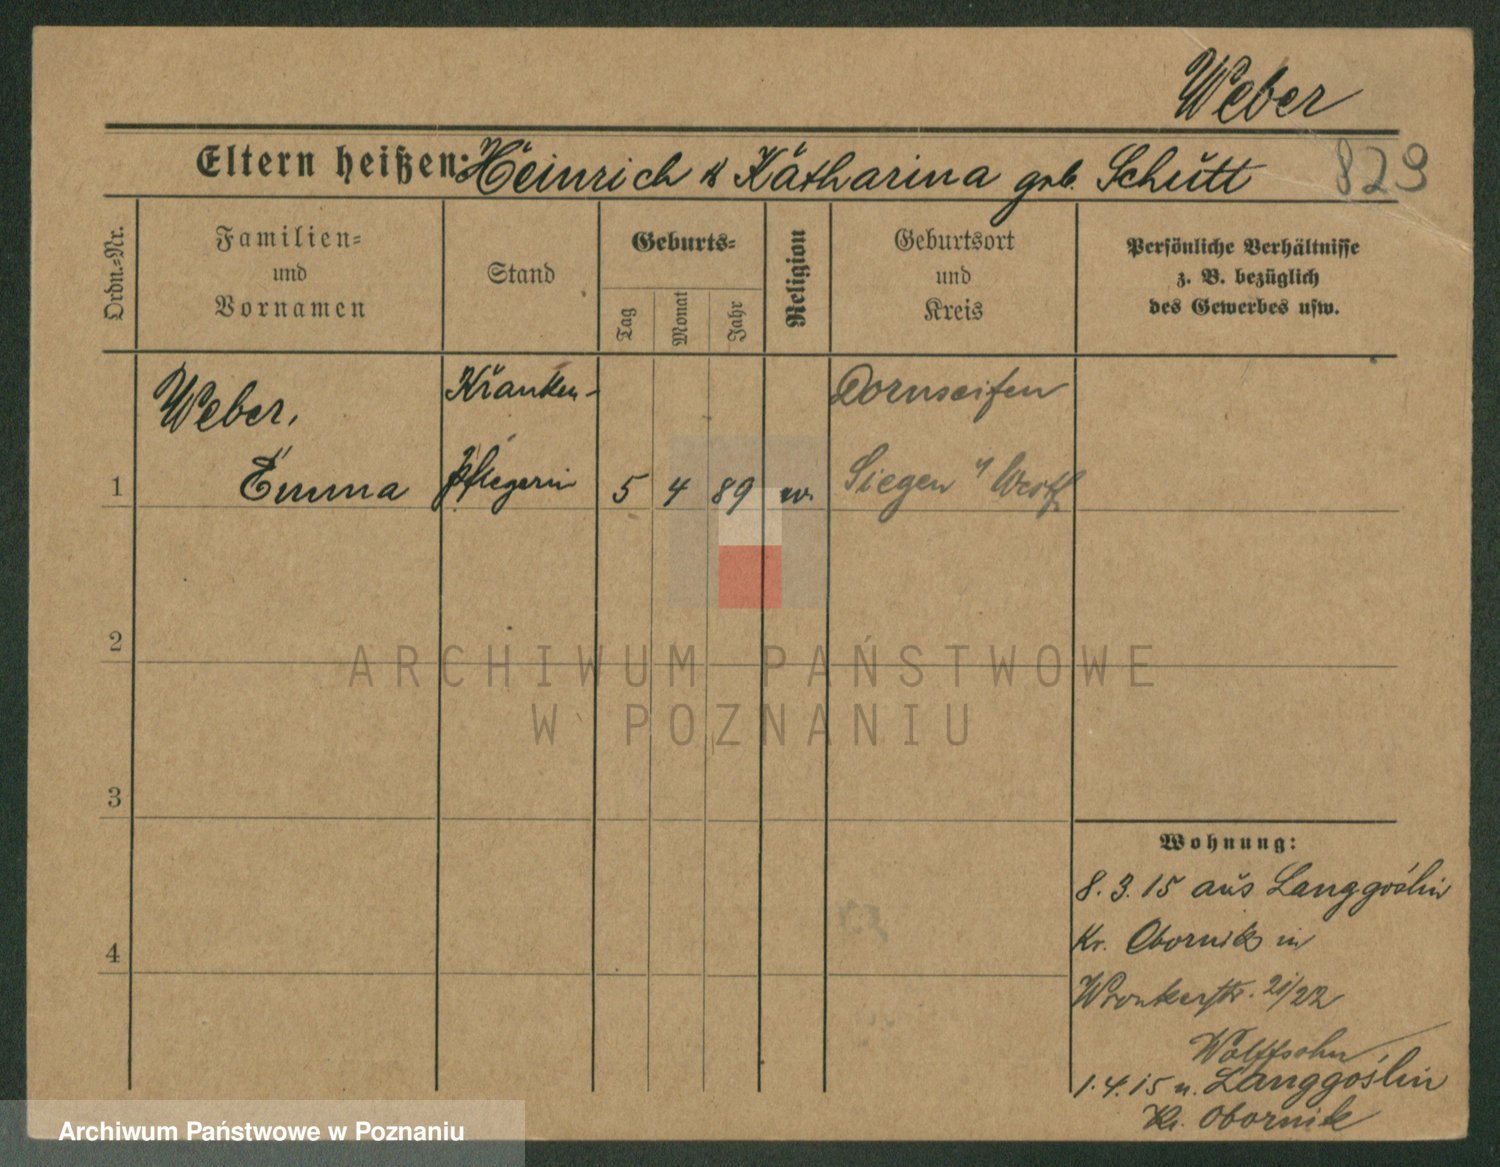 Weber
Eltern heißen: Heinrich & Katharina geb. Schütt
829
Ordn.-Nr.
Familien-
und
Vornamen
Stand
Geburts-
Tag
Monat
Jahr
Religion
Geburtsort
und
Kreis
Persönliche Verhältnisse
z. B. bezüglich
des Gewerbes usw.
Weber,
Kranken-
Dornseifen
1
Emma
pflegerin
5
4
89
Siegen i/ Westf
2
ARCHIWUM PAŃSTWOWE
W POZNANIU
3
Wohnung:
8.3.15 aus Langgoślin
Kr. Obornik in
4
Wronkerstr. 21/22
Wolffsohn
1.4.15 n. Langgoślin
Kr. Obornik
Archiwum Państwowe w Poznaniu